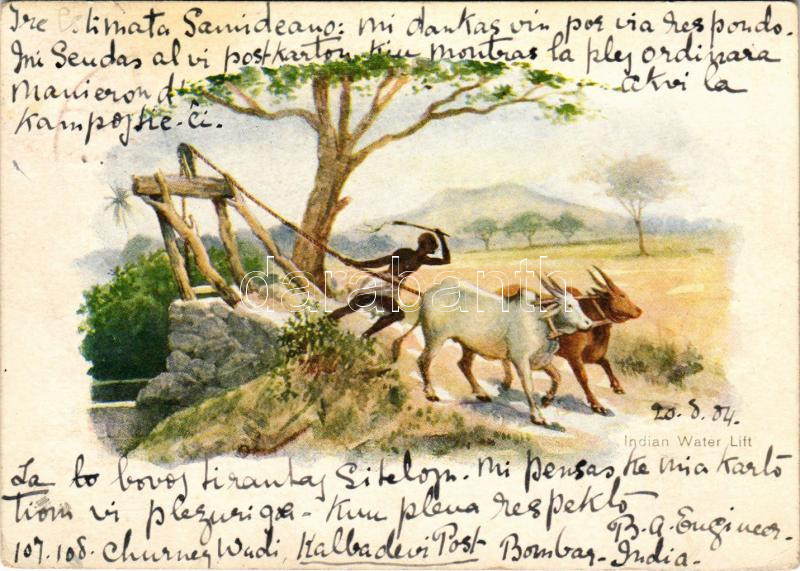 Tre Estimata Samideano: mi dankas vin por via respondo.
Mi Sendas al vi postkarton kiu montras la plej ordinara
Manieron d' akvi la
kampojn tie-ĉi.
darabanth.com
20.8.04.
Indian Water Lift
La bovoj tirantaj Sitelojn. Mi pensas ke mia karto
vi plezuriga - kun plena respekto
B. A. Engineer
107.108. Churney Wudi, Kalbadevi Post Bombay - India.